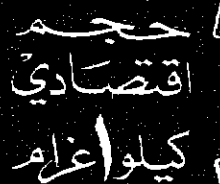 حجم
اقتصاديْ
١ كيلو غرام